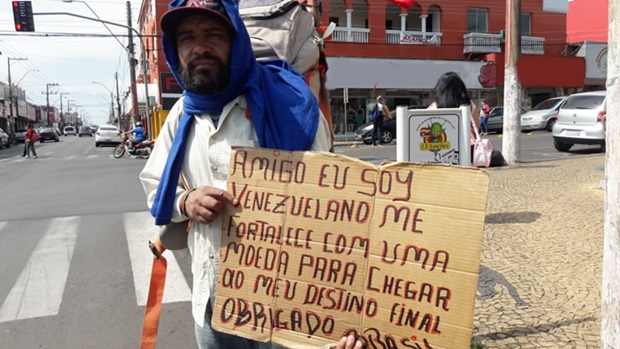 AMIGO EU SOY
VENEZUELANO ME
FORTALECE COM UMA
MOEDA PARA CHEGAR
AO MEU DESTINO FINAL
OBRIGADO BRASIL